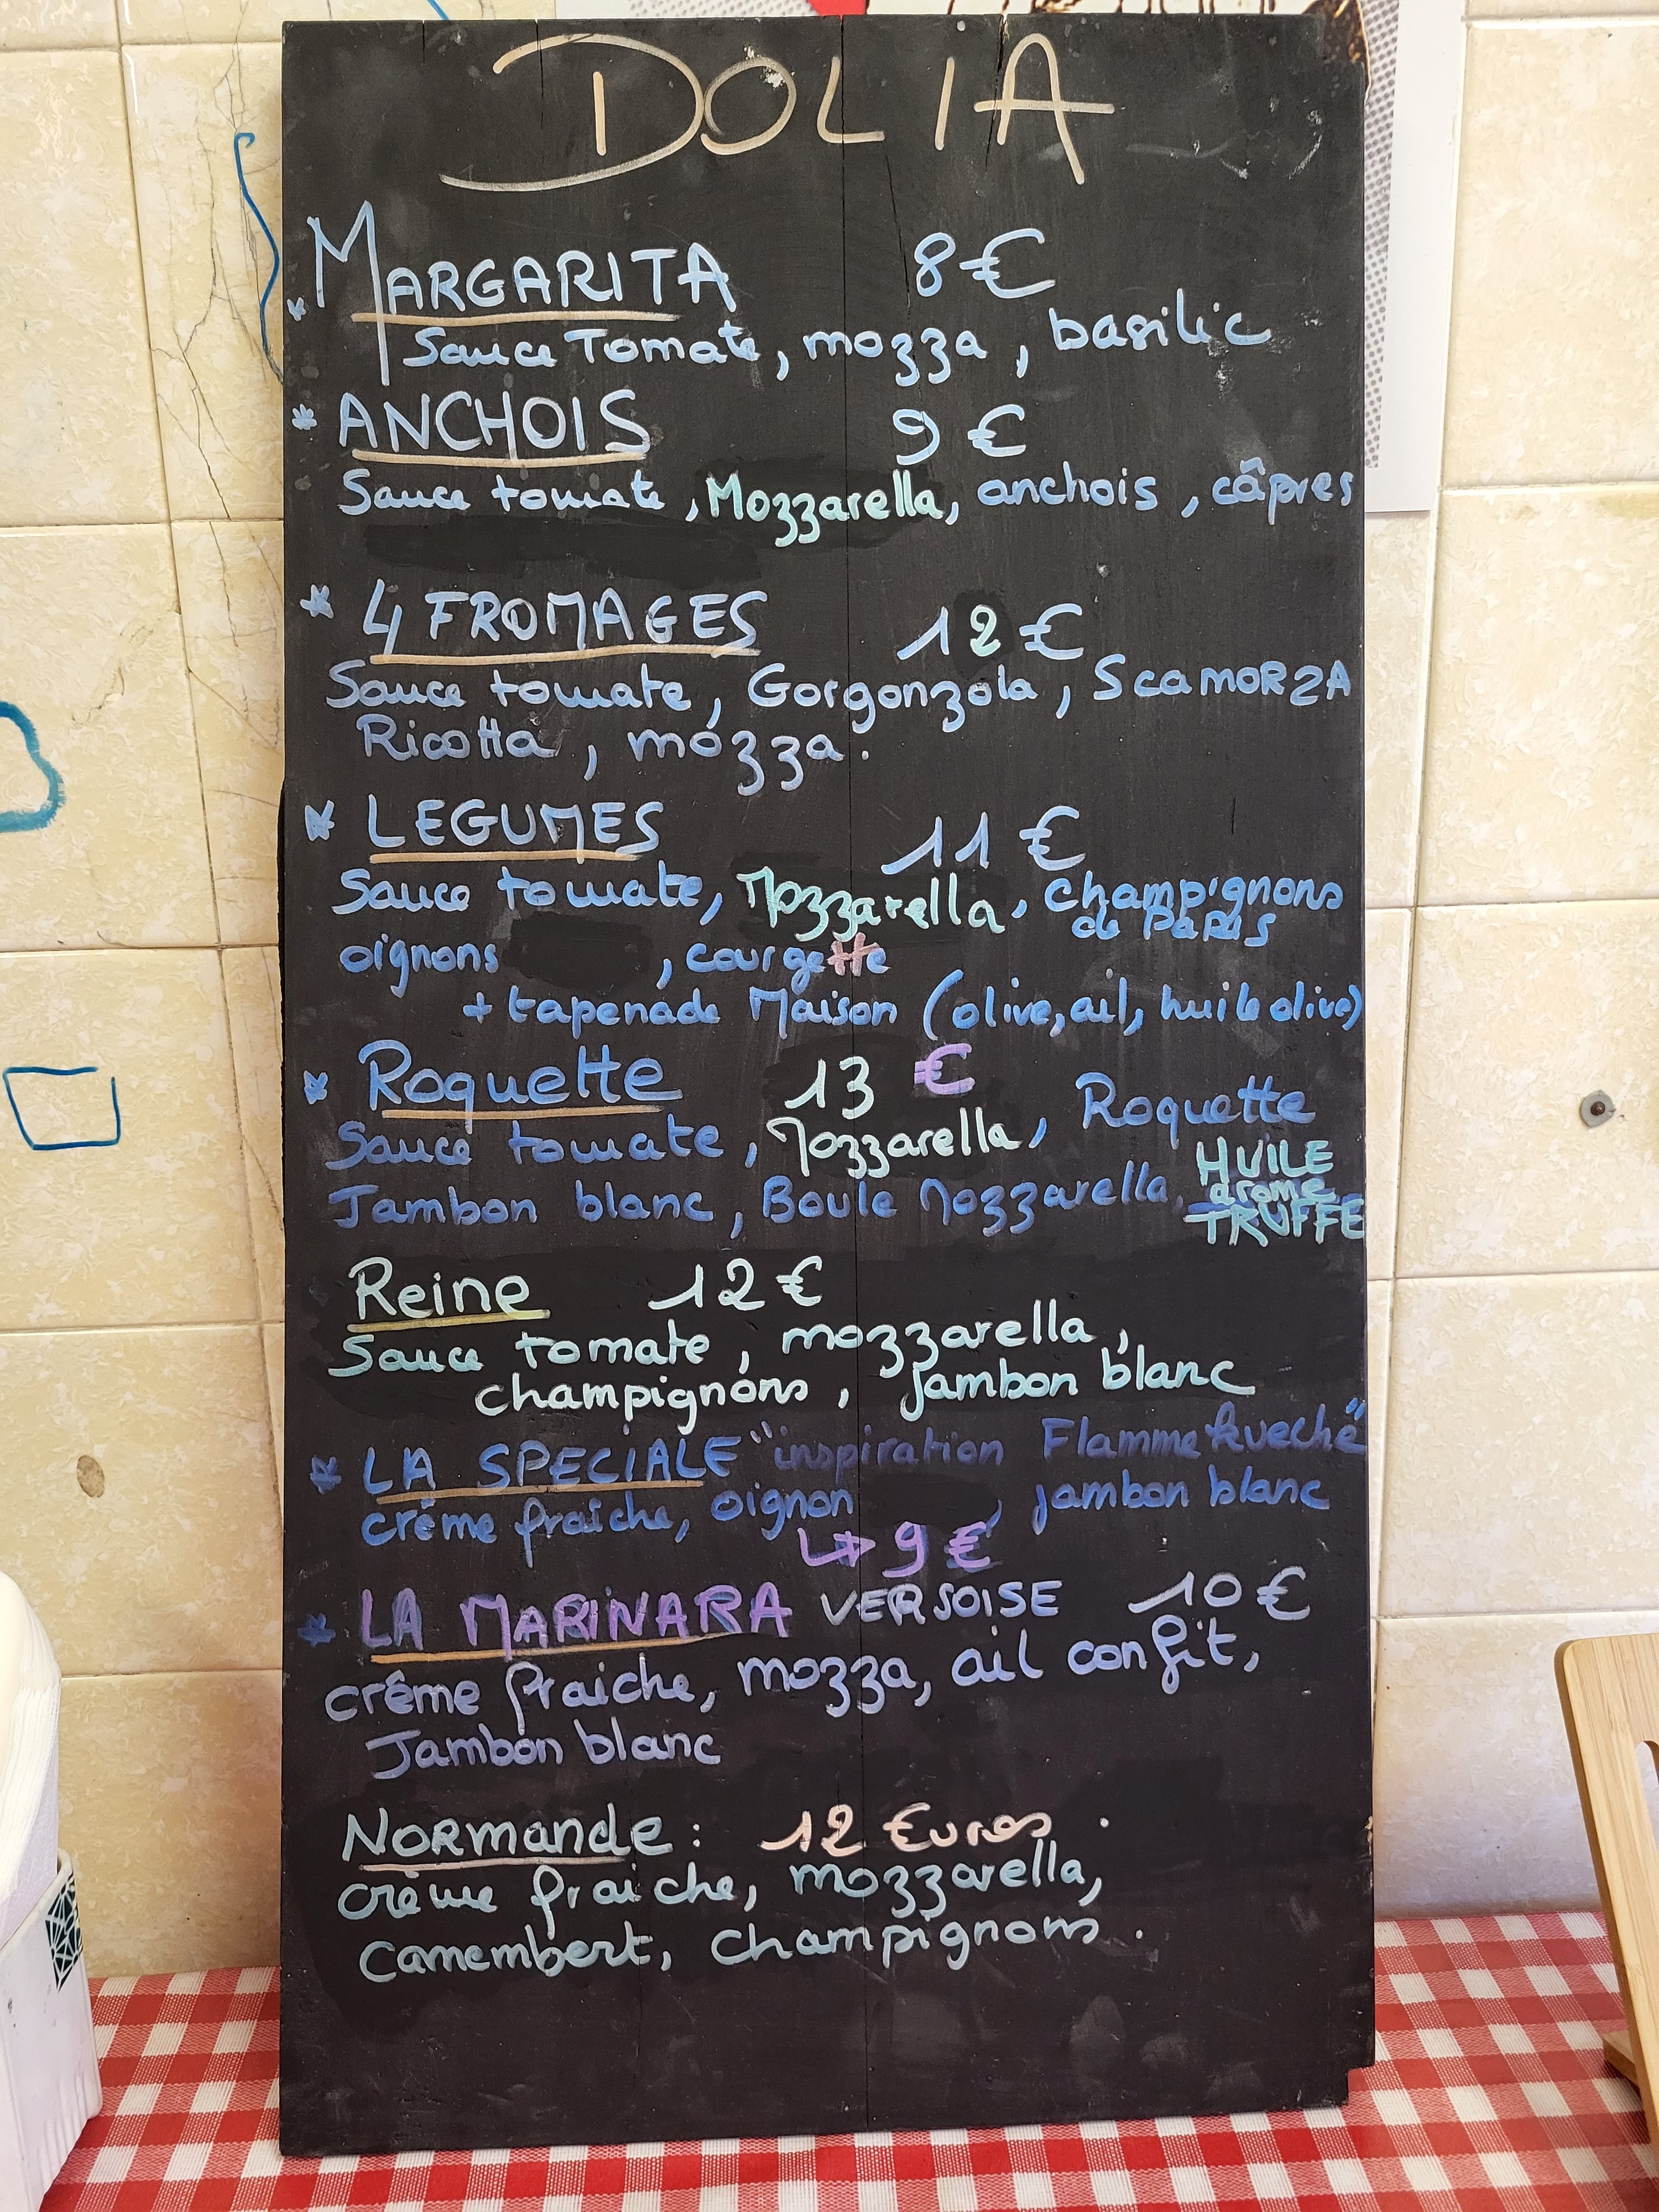 DOLIA
* MARGARITA 8€
Sauce Tomate, mozza, basilic
* ANCHOIS 9 €
Sauce tomate, Mozzarella, anchois, câpres
* 4 FROMAGES 12 €
Sauce tomate, Gorgonzola, ScamORZA
Ricotta, mozza.
* LEGUMES 11 €
Sauce tomate, Mozzarella, champignons
de PARIS
oignons , courgette
+ tapenade Maison (olive, ail, huile olive)
* Roquette 13 €
Sauce tomate, Mozzarella, Roquette
Jambon blanc, Boule Mozzarella, HUILE
arome
TRUFFE
Reine 12 €
Sauce tomate, mozzarella,
champignons, jambon blanc
* LA SPECIALE "inspiration Flammekueche"
crême fraiche, oignon , jambon blanc
↳ 9 €
* LA MARINARA VERSOISE 10 €
crême fraiche, mozza, ail confit,
Jambon blanc
NORmande : 12 Euros.
crème fraiche, mozzarella,
Camembert, champignons.